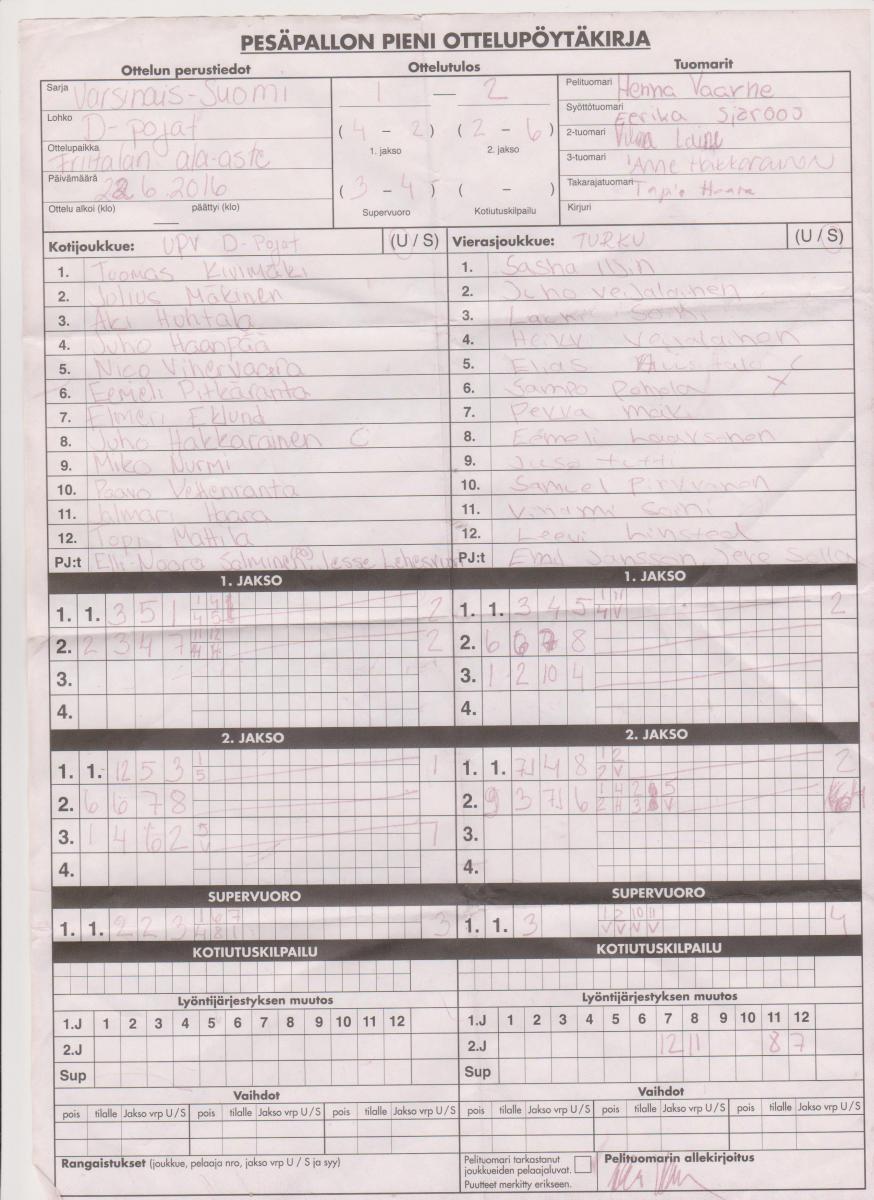 PESÄPALLON PIENI OTTELUPÖYTÄKIRJA
Ottelun perustiedot
Ottelutulos
Tuomarit
Sarja Varsinais-Suomi
Lohko D-pojat
Ottelupaikka ala-aste
Päivämäärä 6.2016
Ottelu alkoi (klo) päättyi (klo)
1 — 2
( 4 – 2 ) ( 2 – 6 )
1. jakso 2. jakso
( 3 – 4 ) ( – )
Supervuoro Kotiutuskilpailu
Pelituomari Henna Vaarne
Syöttötuomari Eerika Sjöroos
2-tuomari Laine
3-tuomari Anne Hakkarainen
Takarajatuomari Haara
Kirjuri
Kotijoukkue: UPV D-Pojat (U / S)
1. Tuomas Kivimäki
2. Julius Mäkinen
3. Aki Huhtala
4. Juho Haanpää
5. Nico Vihervaara
6. Eemeli Pitkäranta
7. Elmeri Eklund
8. Juho Hakkarainen C
9. Miko Nurmi
10. Paavo Vettenranta
11. Jalmari Haara
12. Topi Mattila
PJ:t Elli-Noora Salminen Jesse
Vierasjoukkue: TURKU (U / S)
1. Sasha
2. Juho Veijalainen
3. Lauri Soini
4. Heikki Veijalainen
5. Elias
6. Sampo Pohjola
7. Pekka Mäki
8. Eemeli Laaksonen
9. Juso
10. Samuel
11. Soini
12. Leevi
PJ:t Emil Jansson Jere
1. JAKSO
1. 1. 3 5 1 2
2. 2 3 4 7 2
3.
4.
1. JAKSO
1. 1. 3 4 5 2
2. 6 8
3. 1 2 10 4
4.
2. JAKSO
1. 1. 12 5 3 1
2. 6 6 7 8
3. 1 4 2 1
4.
2. JAKSO
1. 1. 4 8 2
2. 9 3 6 4
3.
4.
SUPERVUORO
1. 1. 2 2 3 3
SUPERVUORO
1. 1. 3 4
KOTIUTUSKILPAILU
KOTIUTUSKILPAILU
Lyöntijärjestyksen muutos
1.J 1 2 3 4 5 6 7 8 9 10 11 12
2.J
Sup
Lyöntijärjestyksen muutos
1.J 1 2 3 4 5 6 7 8 9 10 11 12
2.J 12 11 8 7
Sup
Vaihdot
pois tilalle Jakso vrp U / S pois tilalle Jakso vrp U / S
Vaihdot
pois tilalle Jakso vrp U / S pois tilalle Jakso vrp U / S pois tilalle Jakso vrp U / S
Rangaistukset (joukkue, pelaaja nro, jakso vrp U / S ja syy)
Pelituomari tarkastanut
joukkueiden pelaajaluvat.
Puutteet merkitty erikseen.
Pelituomarin allekirjoitus